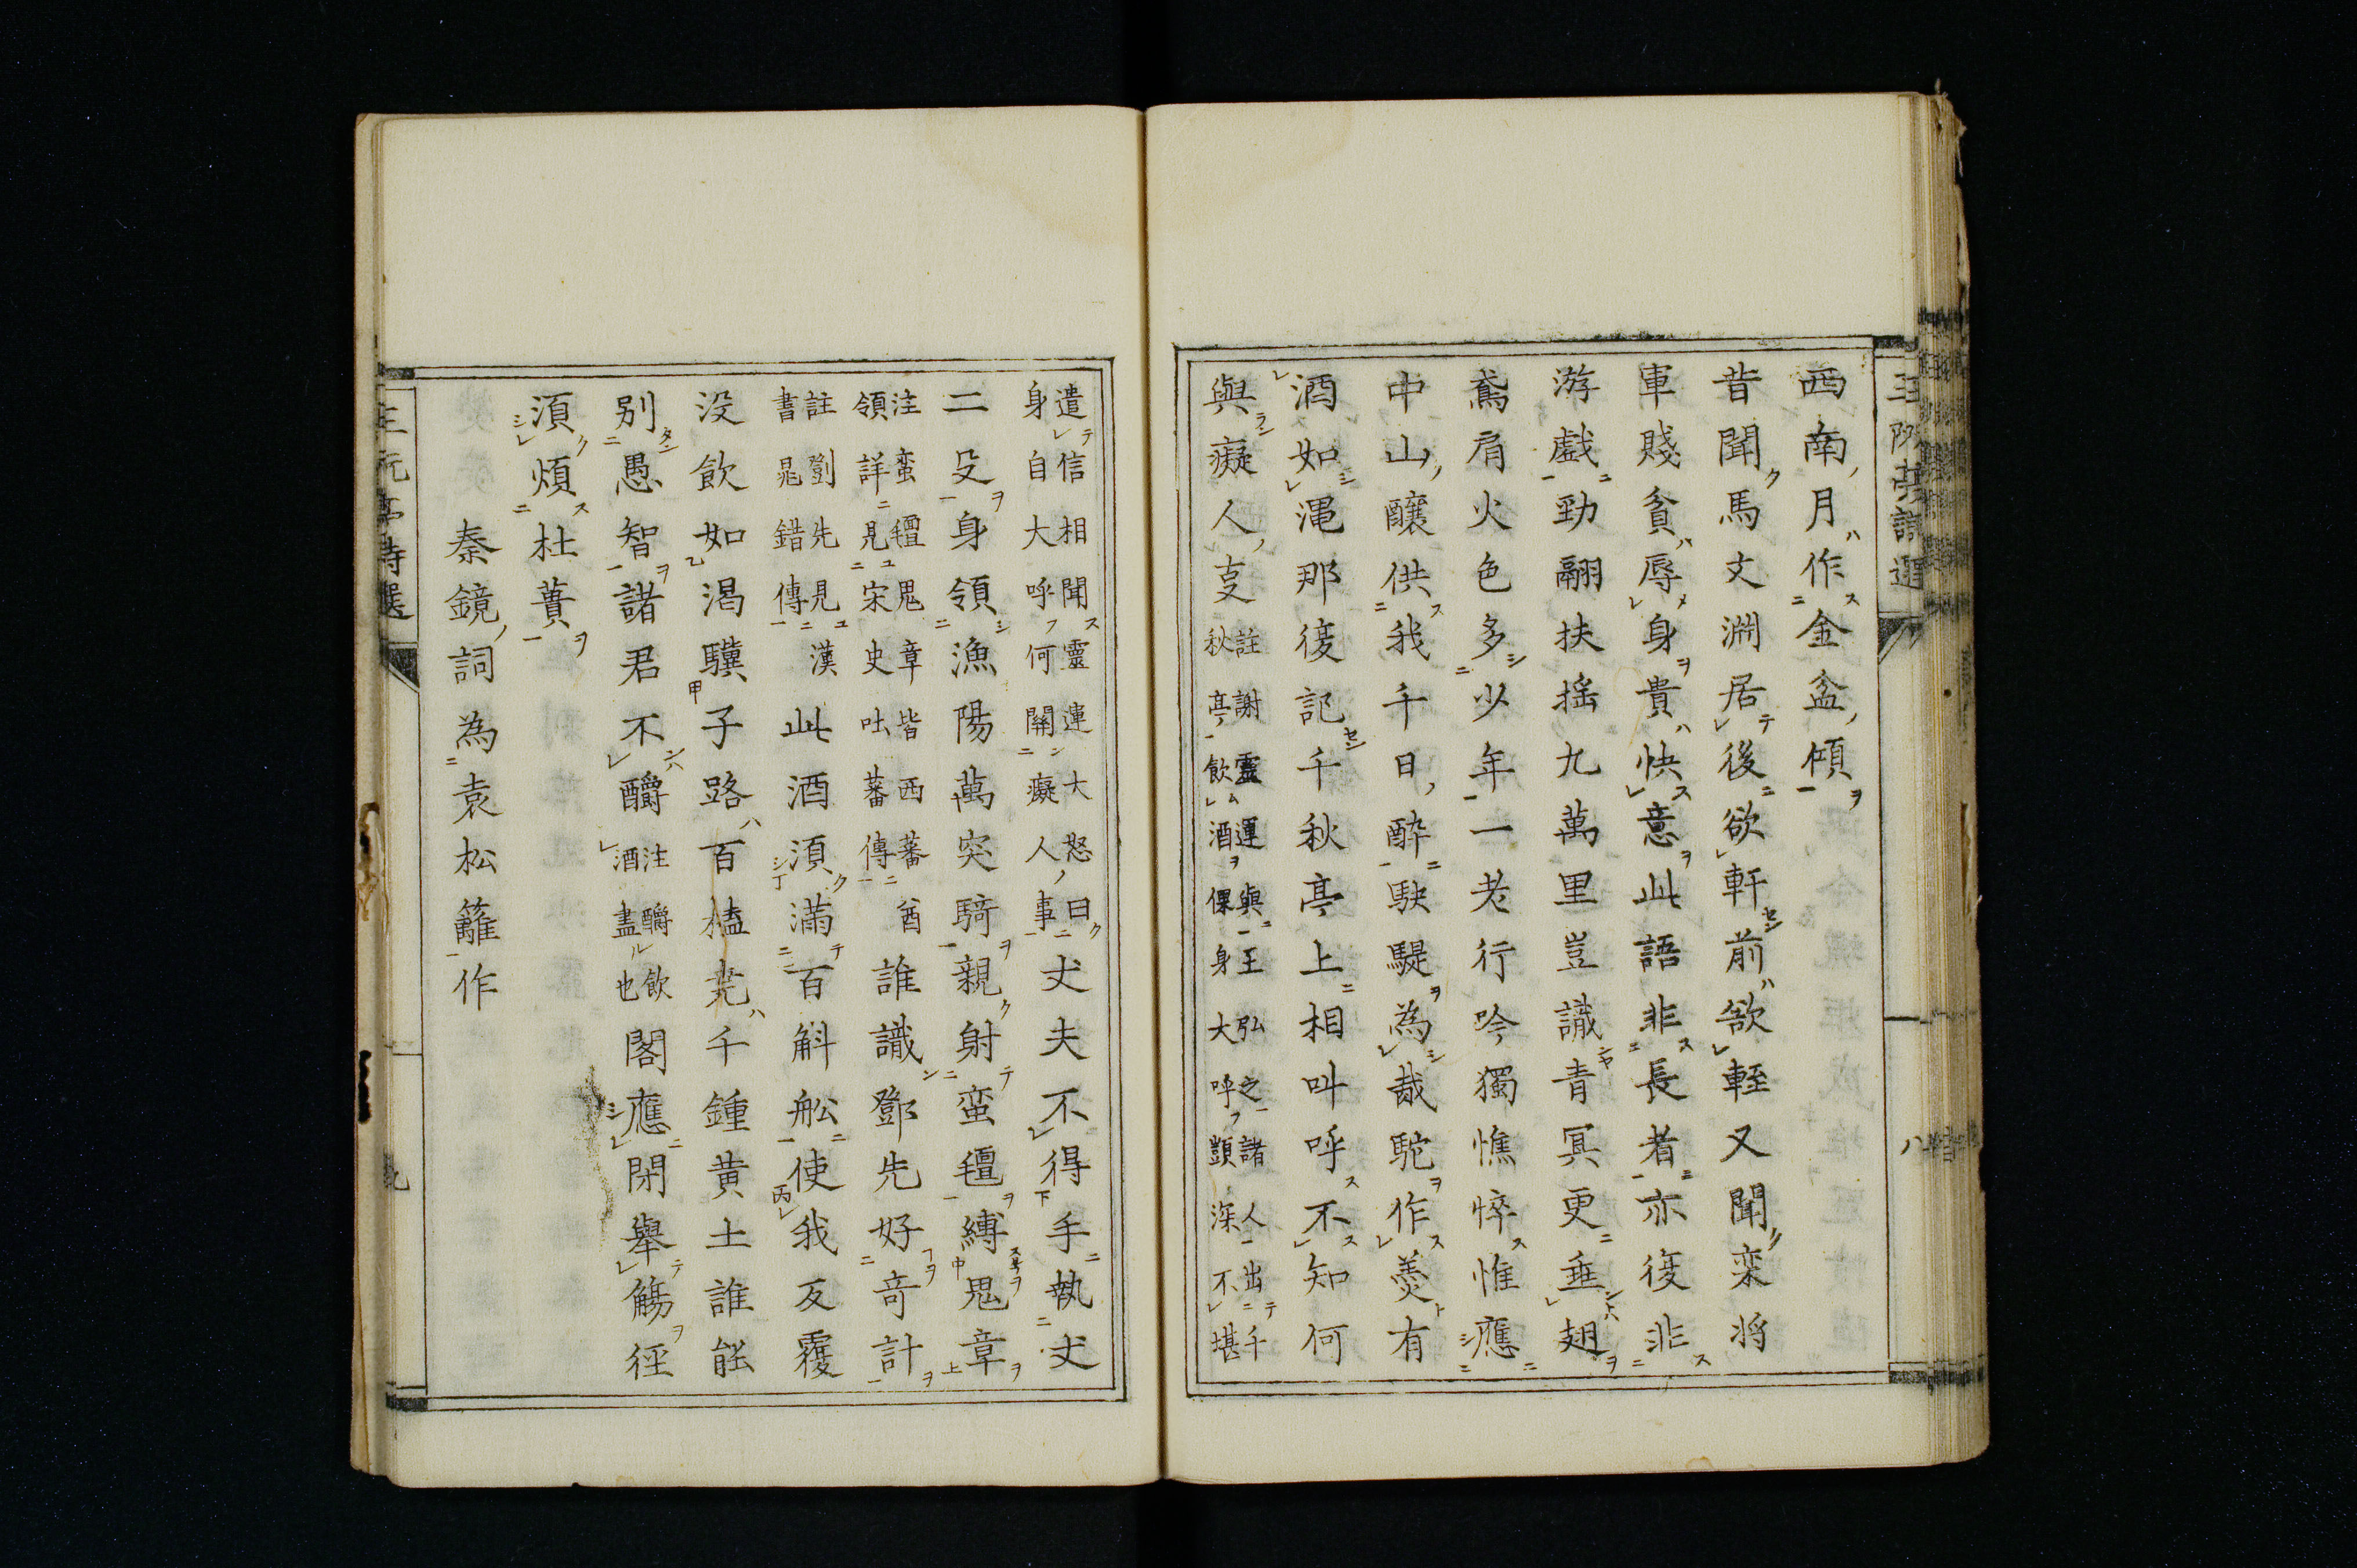 西南月作金盆傾
昔聞馬文淵居後欲軒前欲輊又聞栾将
軍賤貧辱身貴快意此語非長者亦復非
游戲勁翮扶搖九萬里豈識青冥更垂翅
鳶肩火色多少年一老行吟獨憔悴惟應
中山釀供我千日醉駃騠為哉駝作羹有
酒如澠那復記千秋亭上相叫呼不知何
與癡人叓
註謝靈運與王弘之諸人出千
秋亭飲酒倮身大呼顗深不堪
王阮亭詩選
八
遣信相聞靈運大怒曰
身自大呼何關癡人事
丈夫不得手執丈
二殳身領漁陽萬突騎親射蛮氊縛鬼章
注蛮氊鬼章皆西蕃酋
領詳見宋史吐蕃傳
誰識鄧先好奇計
註劉先見漢
書晁錯傳
此酒湏滿百斛舩使我反覆
没飲如渴驥子路百榼尭千鍾黄土誰能
别愚智諸君不釂
注釂飲
酒盡也
閣應閉舉觴徑
湏煩杜蕢
秦鏡詞為袁松籬作
王阮亭詩選
九